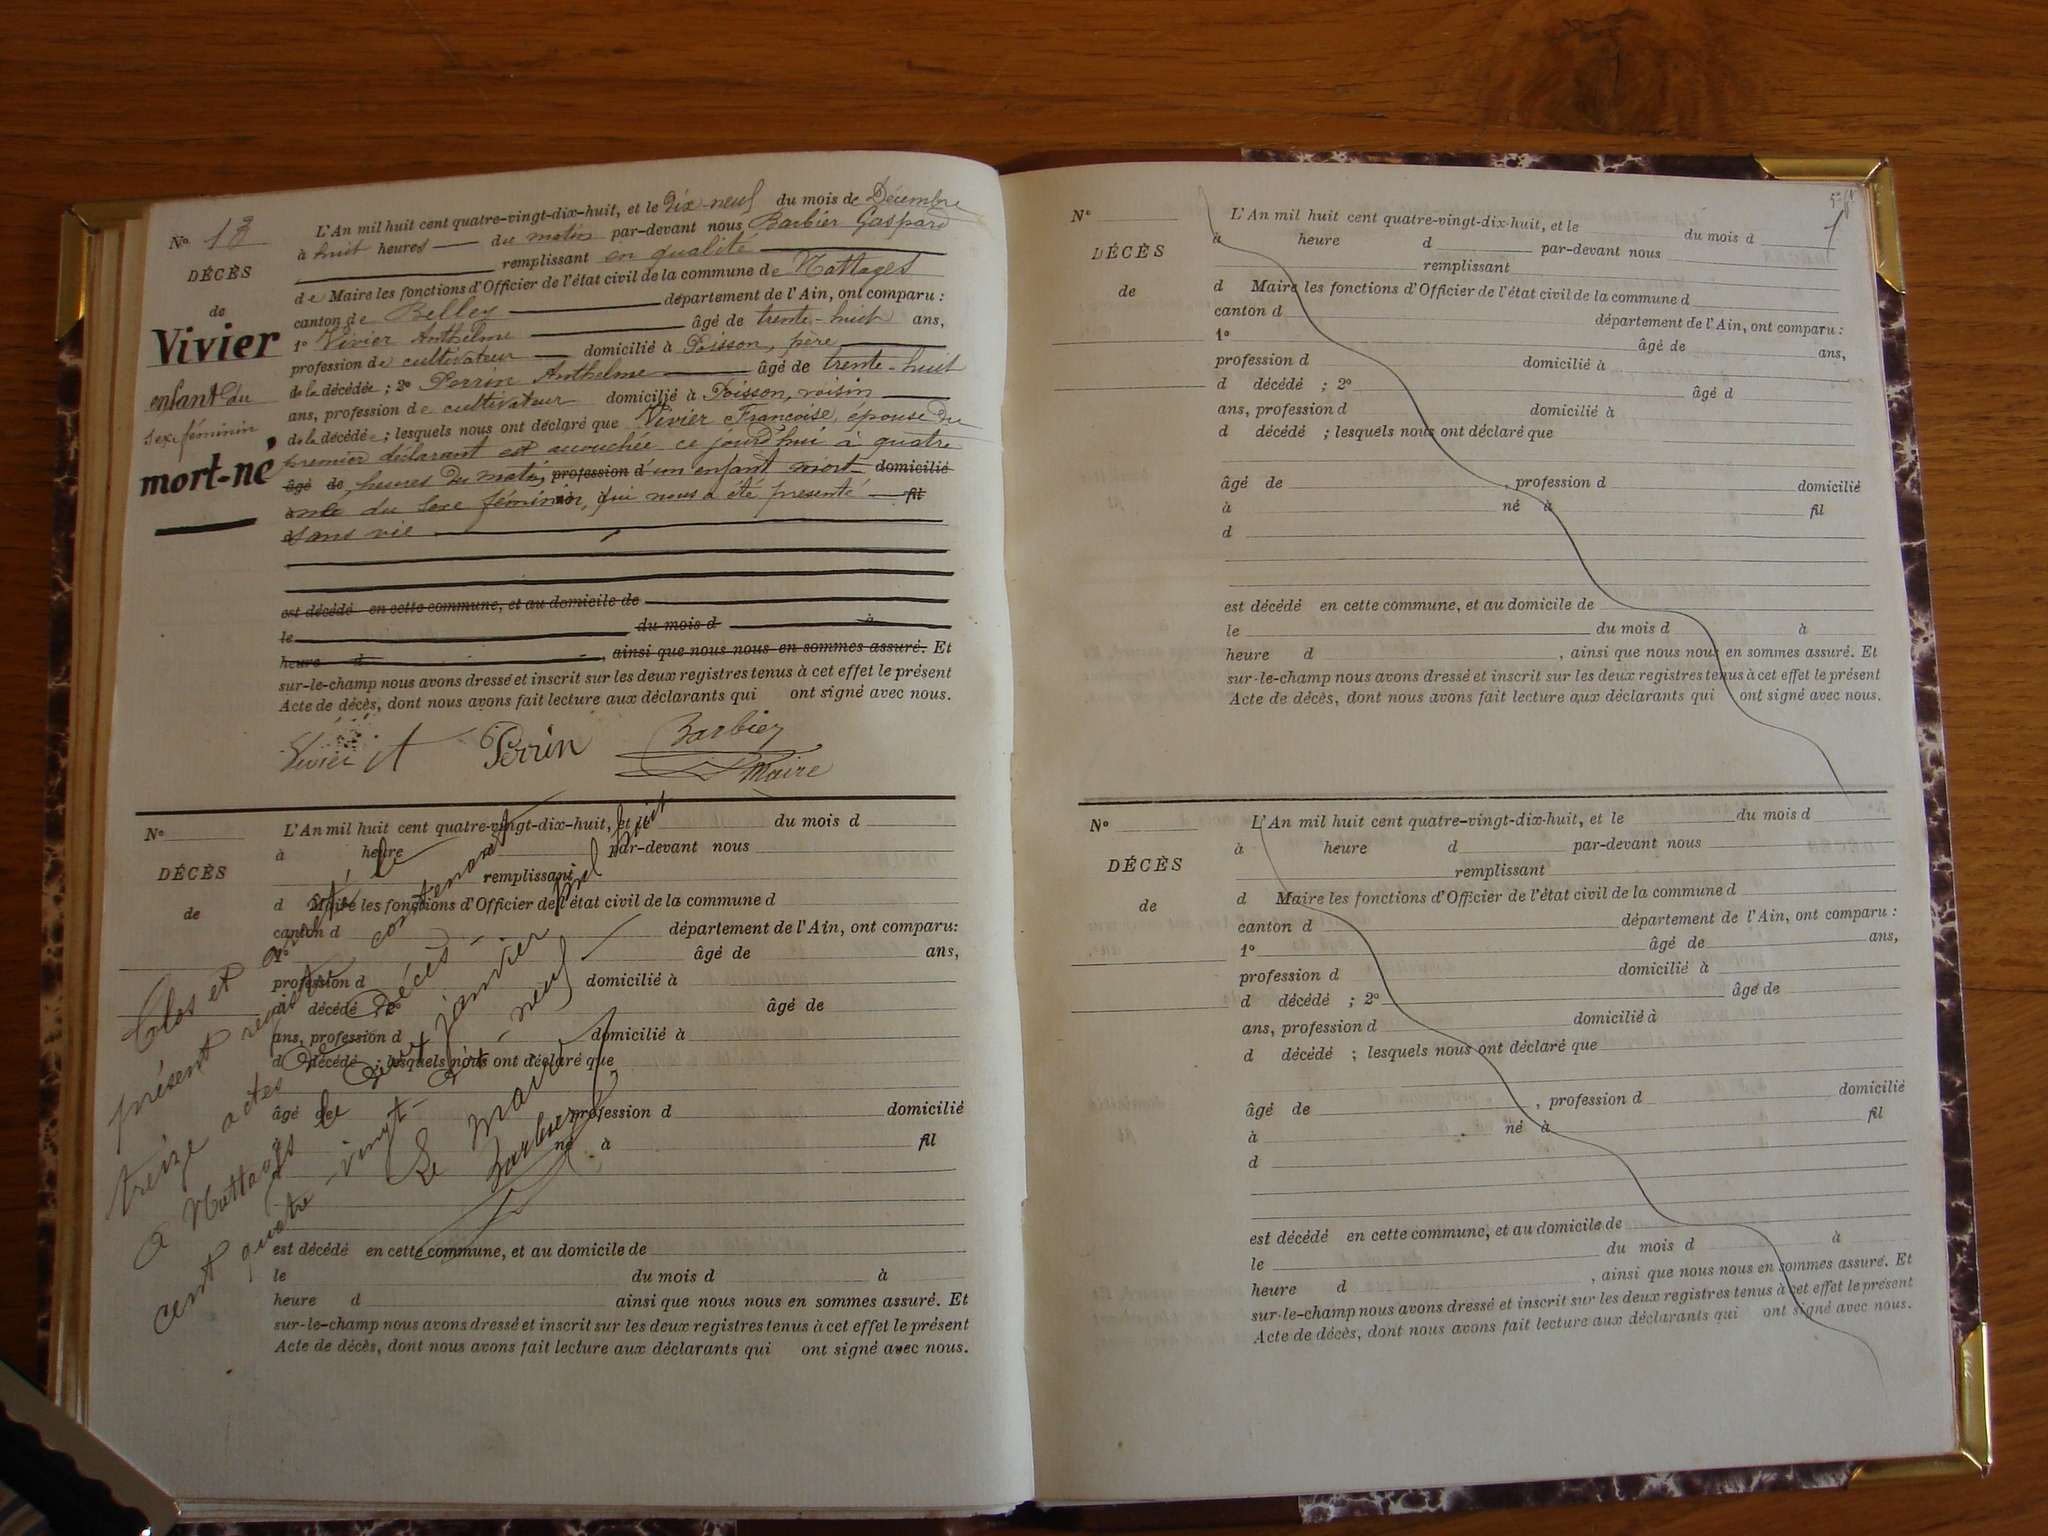 N° 13
DÉCÈS
de
Vivier
enfant du
sexe féminin,
mort-né
L'An mil huit cent quatre-vingt-dix-huit, et le dix-neuf du mois de Décembre
à huit heures du matin par-devant nous Barbier Gaspard
remplissant en qualité
de Maire les fonctions d'Officier de l'état civil de la commune de Nattages
canton de Belley département de l'Ain, ont comparu :
1° Vivier Anthelme âgé de trente-huit ans,
profession de cultivateur domicilié à Poisson, père
de la décédée ; 2° Perrin Anthelme âgé de trente-huit
ans, profession de cultivateur domicilié à Poisson, voisin
de la décédée ; lesquels nous ont déclaré que Vivier Françoise, épouse du
premier déclarant est accouchée ce jourd'hui à quatre
âgé de heures du matin, profession d'un enfant mort domicilié
née du sexe féminin, qui nous a été présenté fil
sans vie
est décédé en cette commune, et au domicile de
le du mois d à
heure d , ainsi que nous nous en sommes assuré. Et
sur-le-champ nous avons dressé et inscrit sur les deux registres tenus à cet effet le présent
Acte de décès, dont nous avons fait lecture aux déclarants qui ont signé avec nous.
Vivier A Perrin Barbier
Maire
N°
DÉCÈS
de
L'An mil huit cent quatre-vingt-dix-huit, et le du mois d
à heure par-devant nous
remplissant
d Maire les fonctions d'Officier de l'état civil de la commune d
canton d département de l'Ain, ont comparu:
1° âgé de ans,
profession d domicilié à
d décédé ; 2° âgé de
ans, profession d domicilié à
d décédé ; lesquels nous ont déclaré que
âgé de profession d domicilié
à né à fil
d
est décédé en cette commune, et au domicile de
le du mois d à
heure d ainsi que nous nous en sommes assuré. Et
sur-le-champ nous avons dressé et inscrit sur les deux registres tenus à cet effet le présent
Acte de décès, dont nous avons fait lecture aux déclarants qui ont signé avec nous.
Clos et arrêté le
présent registre contenant
treize actes de Décès
à Nattages le deux janvier mil huit
cent quatre-vingt-dix-neuf
Le Maire
Barbier
1
N°
DÉCÈS
de
L'An mil huit cent quatre-vingt-dix-huit, et le du mois d
à heure d par-devant nous
remplissant
d Maire les fonctions d'Officier de l'état civil de la commune d
canton d département de l'Ain, ont comparu :
1° âgé de ans,
profession d domicilié à
d décédé ; 2° âgé d
ans, profession d domicilié à
d décédé ; lesquels nous ont déclaré que
âgé de , profession d domicilié
à né à fil
d
est décédé en cette commune, et au domicile de
le du mois d à
heure d , ainsi que nous nous en sommes assuré. Et
sur-le-champ nous avons dressé et inscrit sur les deux registres tenus à cet effet le présent
Acte de décès, dont nous avons fait lecture aux déclarants qui ont signé avec nous.
N°
DÉCÈS
de
L'An mil huit cent quatre-vingt-dix-huit, et le du mois d
à heure d par-devant nous
remplissant
d Maire les fonctions d'Officier de l'état civil de la commune d
canton d département de l'Ain, ont comparu :
1° âgé de ans,
profession d domicilié à
d décédé ; 2° âgé de
ans, profession d domicilié à
d décédé ; lesquels nous ont déclaré que
âgé de , profession d domicilié
à né à fil
d
est décédé en cette commune, et au domicile de
le du mois d à
heure d , ainsi que nous nous en sommes assuré. Et
sur-le-champ nous avons dressé et inscrit sur les deux registres tenus à cet effet le présent
Acte de décès, dont nous avons fait lecture aux déclarants qui ont signé avec nous.